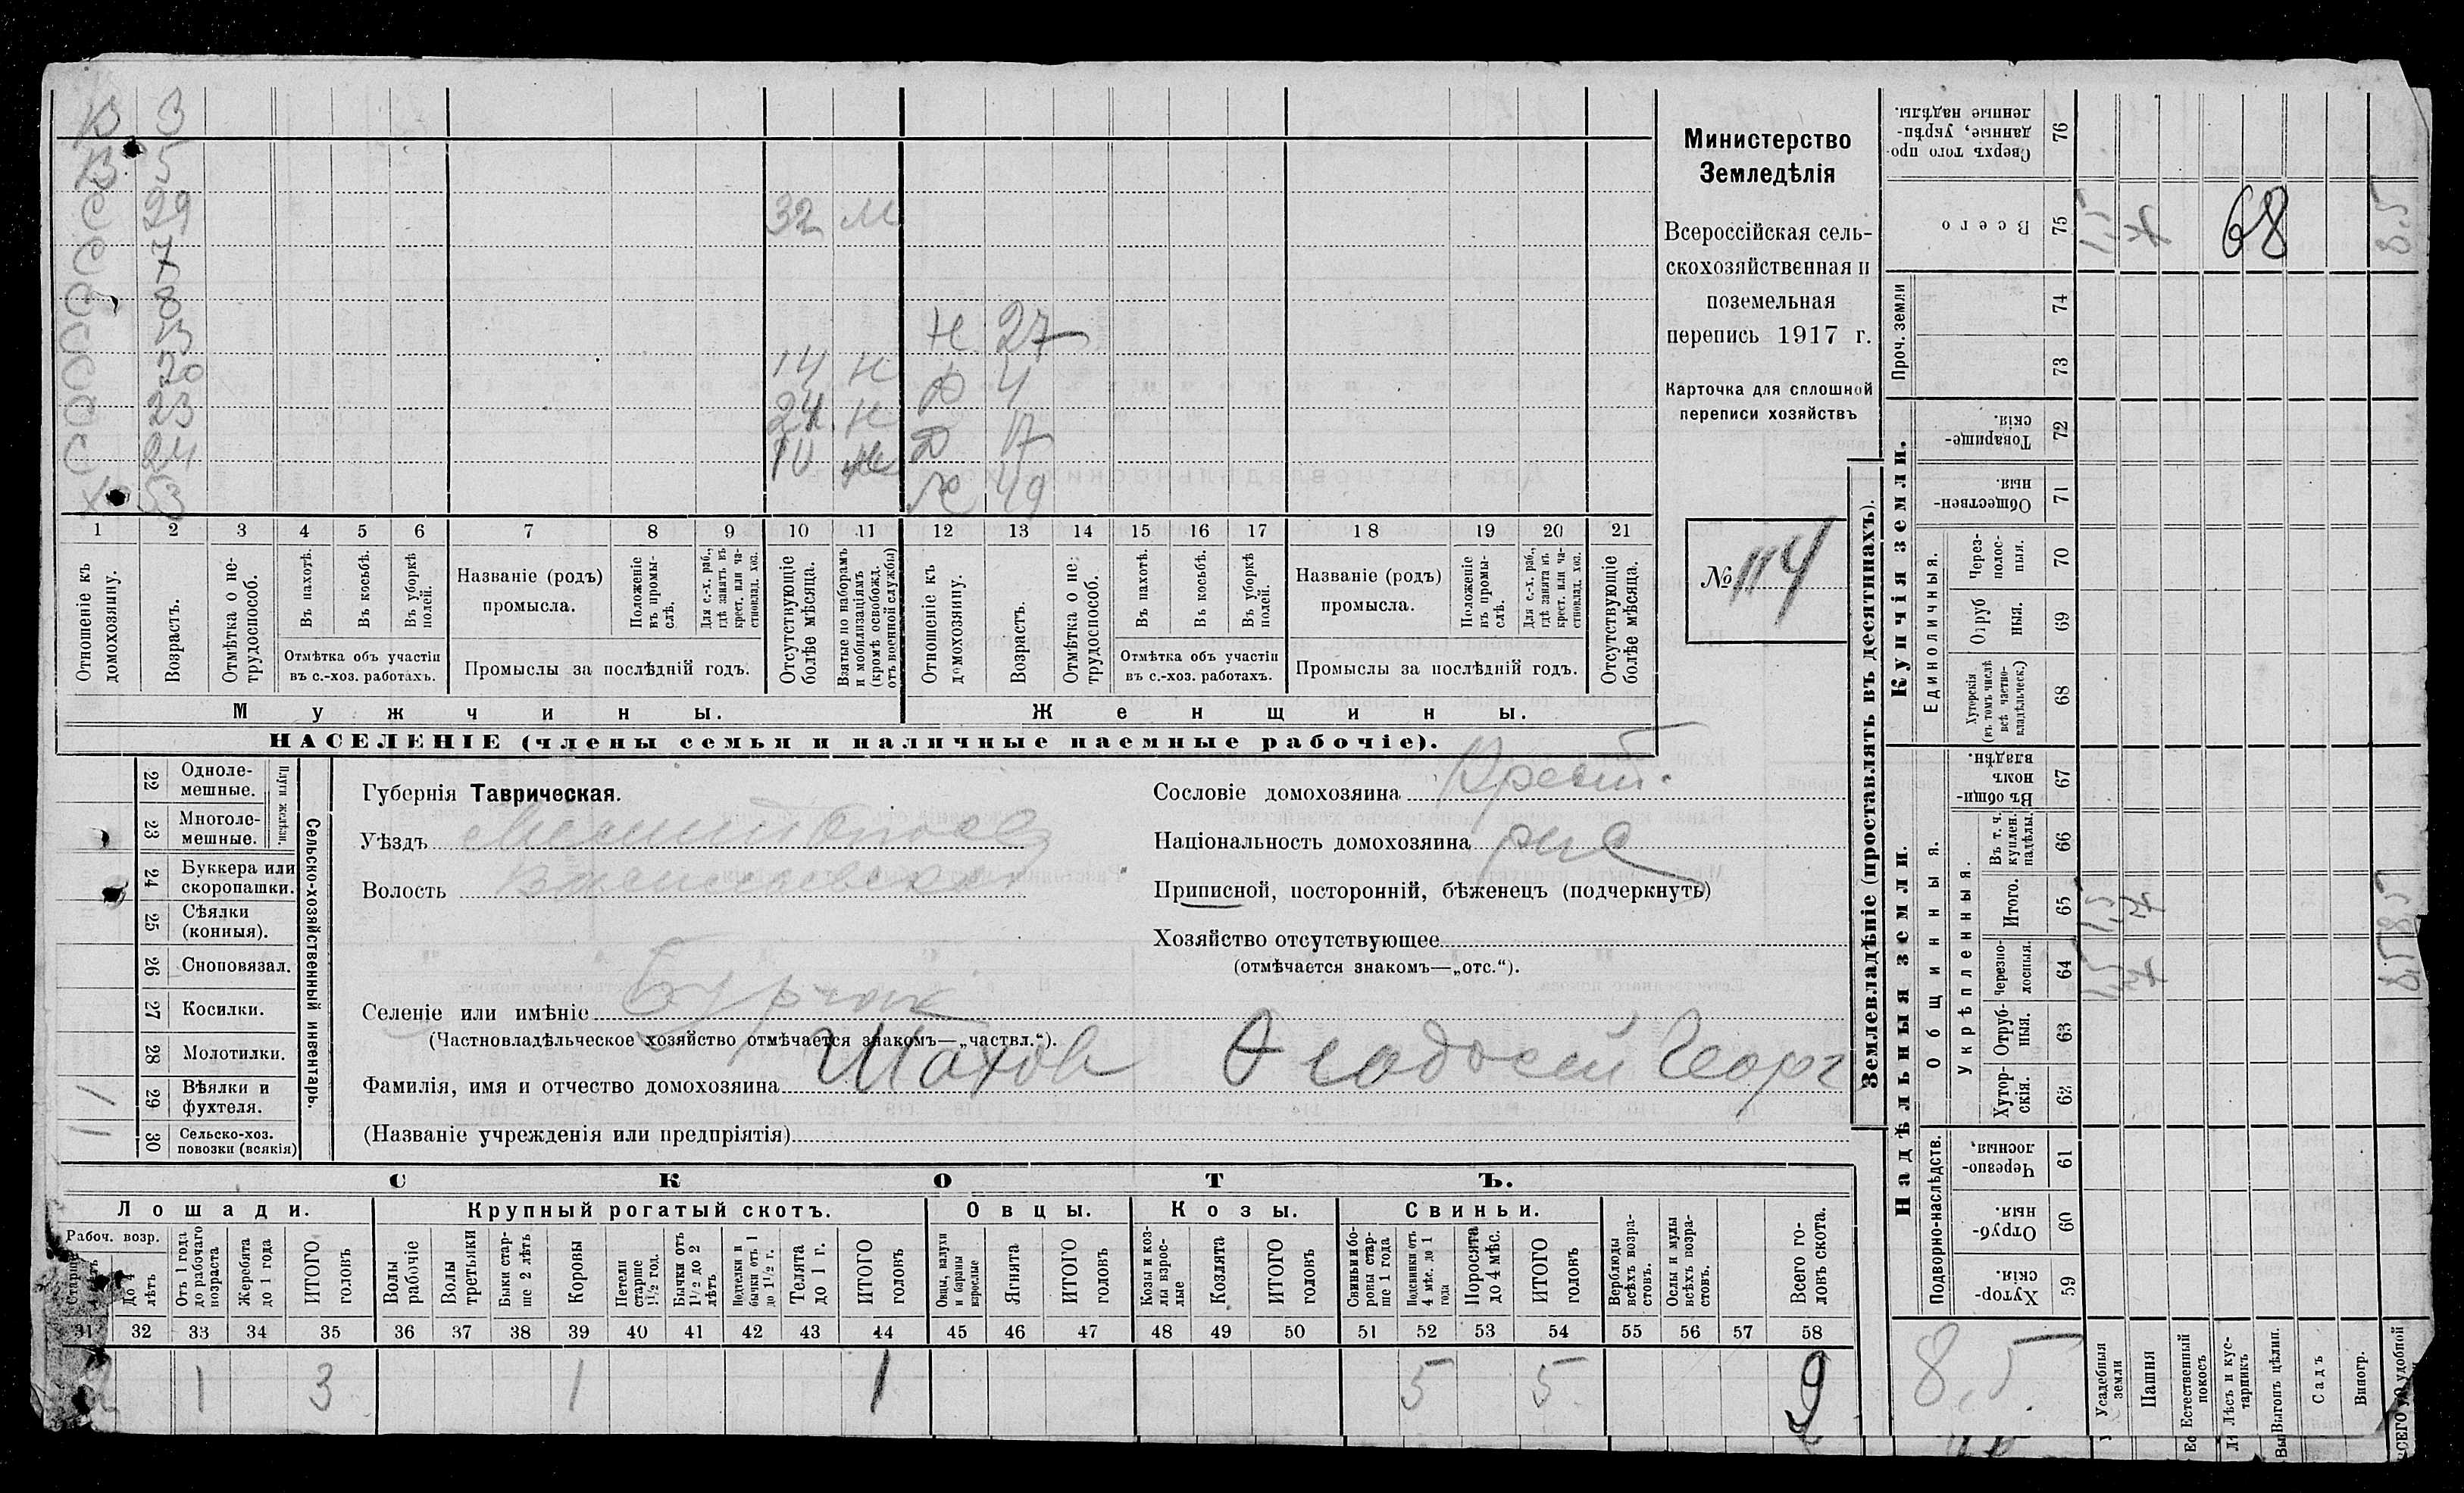 В 3
В 5
С 29 32 М
С 7
С 8
С 13 Н 27
С 20 14 Н В 4
С 23 24 Н Д 17
С 24 10 Ж 49
Х 53
1 2 3 4 5 6 7 8 9 10 11 12 13 14 15 16 17 18 19 20 21
Отношеніе къ домохозяину.
Возрастъ.
Отмѣтка о нетрудоспособ.
Въ пахотѣ.
Въ косьбѣ.
Въ уборкѣ полей.
Отмѣтка объ участіи въ с.-хоз. работахъ.
Названіе (родъ) промысла.
Положеніе въ промыслѣ.
Для с.-х. раб., гдѣ занятъ въ крест. или частновлад. хоз.
Промыслы за послѣдній годъ.
Отсутствующіе болѣе мѣсяца.
Взятые по наборамъ и мобилизаціямъ (кромѣ освобожд. отъ военной службы)
Отношеніе къ домохозяину.
Возрастъ.
Отмѣтка о нетрудоспособ.
Въ пахотѣ.
Въ косьбѣ.
Въ уборкѣ полей.
Отмѣтка объ участіи въ с.-хоз. работахъ.
Названіе (родъ) промысла.
Положеніе въ промыслѣ.
Для с.-х. раб., гдѣ занята въ крест. или частновлад. хоз.
Промыслы за послѣдній годъ.
Отсутствующіе болѣе мѣсяца.
Мужчины. Женщины.
НАСЕЛЕНІЕ (члены семьи и наличные наемные рабочіе).
Министерство
Земледѣлія
Всероссійская сель-
скохозяйственная и
поземельная
перепись 1917 г.
Карточка для сплошной
переписи хозяйствъ
№ 114
22 Одноле-мешные.
23 Многоле-мешные.
Плуги желѣзн.
24 Буккера или скоропашки.
25 Сѣялки (конныя).
26 Сноповязал.
27 Косилки.
28 Молотилки.
29 Вѣялки и фухтеля. 1
30 Сельско-хоз. повозки (всякія) 1
Сельско-хозяйственный инвентарь.
Губернія Таврическая.
Уѣздъ Мелитопол
Волость Васильевская
Селеніе или имѣніе Бурчак
(Частновладѣльческое хозяйство отмѣчается знакомъ—„частвл.“).
Фамилія, имя и отчество домохозяина Шахов Феодосей Георг
(Названіе учрежденія или предпріятія)
Сословіе домохозяина Крест.
Національность домохозяина рус
Приписной, посторонній, бѣженецъ (подчеркнуть)
Хозяйство отсутствующее
(отмѣчается знакомъ—„отс.“).
СКОТЪ.
Лошади. Крупный рогатый скотъ. Овцы. Козы. Свиньи.
Рабоч. возр.
До 4 лѣтъ
Отъ 1 года до рабочаго возраста
Жеребята до 1 года
ИТОГО головъ
Волы рабочіе
Волы третьяки
Быки старше 2 лѣтъ
Коровы
Нетели старше 1½ год.
Бычки отъ 1½ до 2 лѣтъ
Нетелки и бычки отъ 1 до 1½ г.
Телята до 1 г.
ИТОГО головъ
Овцы, валухи и бараны взрослые
Ягнята
ИТОГО головъ
Козы и козлы взрослые
Козлята
ИТОГО головъ
Свиньи и боровы старше 1 года
Подсвинки отъ 4 мѣс. до 1 года
Поросята до 4 мѣс.
ИТОГО головъ
Верблюды всѣхъ возрастовъ.
Ослы и мулы всѣхъ возрастовъ.
Всего головъ скота.
31 32 33 34 35 36 37 38 39 40 41 42 43 44 45 46 47 48 49 50 51 52 53 54 55 56 57 58
2 1 3 1 1 5 5 9
Землевладѣніе (проставлять въ десятинахъ).
Купчія земли.
Надѣльныя земли.
Сверхъ того проданные, укрѣпленные надѣлы. 76
Всего 75 1,5 68 8,5
Проч. земли 74
73
Товарищескія. 72
Общественныя. 71
Единоличныя.
Черезполосныя. 70
Отрубныя. 69
Хуторскія (въ томъ числѣ всѣ частновладѣльческ.) 68
Общинныя.
Въ общинномъ владѣн. 67
Укрѣпленныя.
Въ т. ч. куплен. надѣлы. 66
Итого. 65 1,5 8,5
Черезполосныя. 64 1,5 8,5
Отрубныя. 63
Хуторскія. 62
Подворно-наслѣдств.
Черезполосныя, 61
Отрубныя. 60
Хуторскія. 59
8,5
Усадебныя земли
Пашня
Естественный покосъ
Лѣсъ и кустарникъ
Выгонъ цѣлин.
Садъ
Виногр.